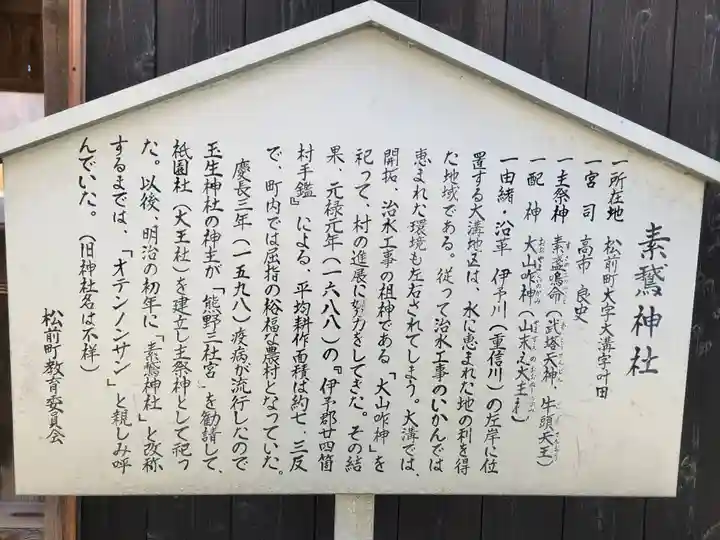 素鵞神社
一所在地 松前町大字大溝字叶田
一宮司 高市良史
一主祭神 素盞鳴命(武塔天神、牛頭天王)
一配神 大山咋神(山末之大主神)
一由緒・沿革 伊予川(重信川)の左岸に位
置する大溝地区は、水に恵まれた地の利を得
た地域である。従って治水工事のいかんでは
恵まれた環境も左右されてしまう。大溝では、
開拓、治水工事の祖神である「大山咋神」を
祀って、村の進展に努力をしてきた。その結
果、元禄元年(一六八八)の『伊予郡廿四箇
村手鑑』による、平均耕作面積は約七、三反
で、町内では屈指の裕福な農村となっていた。
慶長三年(一五九八)疫病が流行したので
玉生神社の神主が「熊野三社宮」を勧請して、
祇園社(天王社)を建立し主祭神として祀っ
た。以後、明治の初年に「素鵞神社」と改称
するまでは、「オテンノンサン」と親しみ呼
んでいた。(旧神社名は不祥)
松前町教育委員会